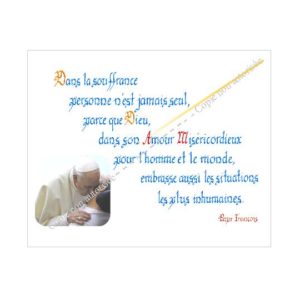 Dans la souffrance
personne n'est jamais seul,
parce que Dieu,
dans son Amour Miséricordieux
pour l'homme et le monde,
embrasse aussi les situations
les plus inhumaines.
Pape François
Copie non autorisée
Copie non autorisée